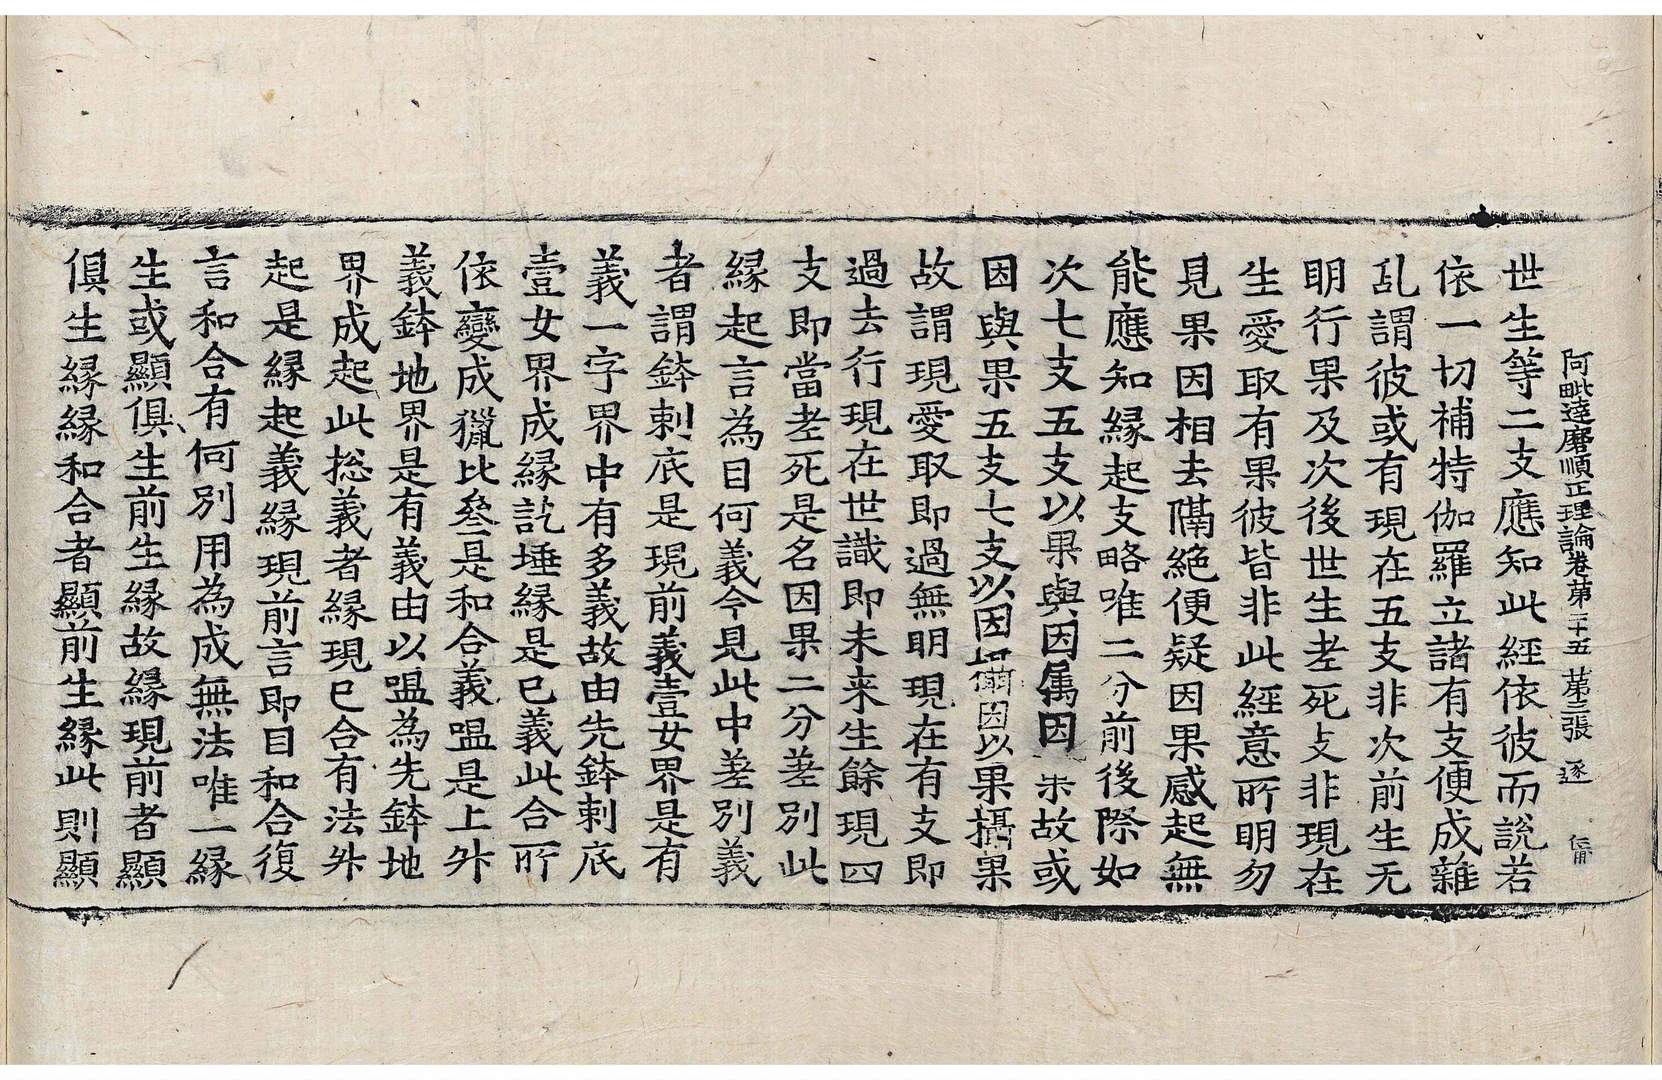 阿毗達磨順正理論卷第二十五 第三張 逐
世生等二支應知此經依彼而說若
依一切補特伽羅立諸有支便成雜
乱謂彼或有現在五支非次前生无
明行果及次後世生老死支非現在
生愛取有果彼皆非此經意所明勿
見果因相去隔絕便疑因果感起無
能應知緣起支略唯二分前後際如
次七支五支以果與因属因果故或
因與果五支七支以因攝因以果攝果
故謂現愛取即過無明現在有支即
過去行現在世識即未来生餘現四
支即當老死是名因果二分差別此
緣起言為目何義今見此中差別義
者謂鉢剌底是現前義壹女界是有
義一字界中有多義故由先鉢剌底
壹女界成緣訖埵緣是已義此合所
依變成獵比參是和合義嗢是上外
義鉢地界是有義由以嗢為先鉢地
界成起此㧾義者緣現已合有法外
起是緣起義緣現前言即目和合復
言和合有何別用為成無法唯一緣
生或顯俱生前生緣故緣現前者顯
俱生緣緣和合者顯前生緣此則顯